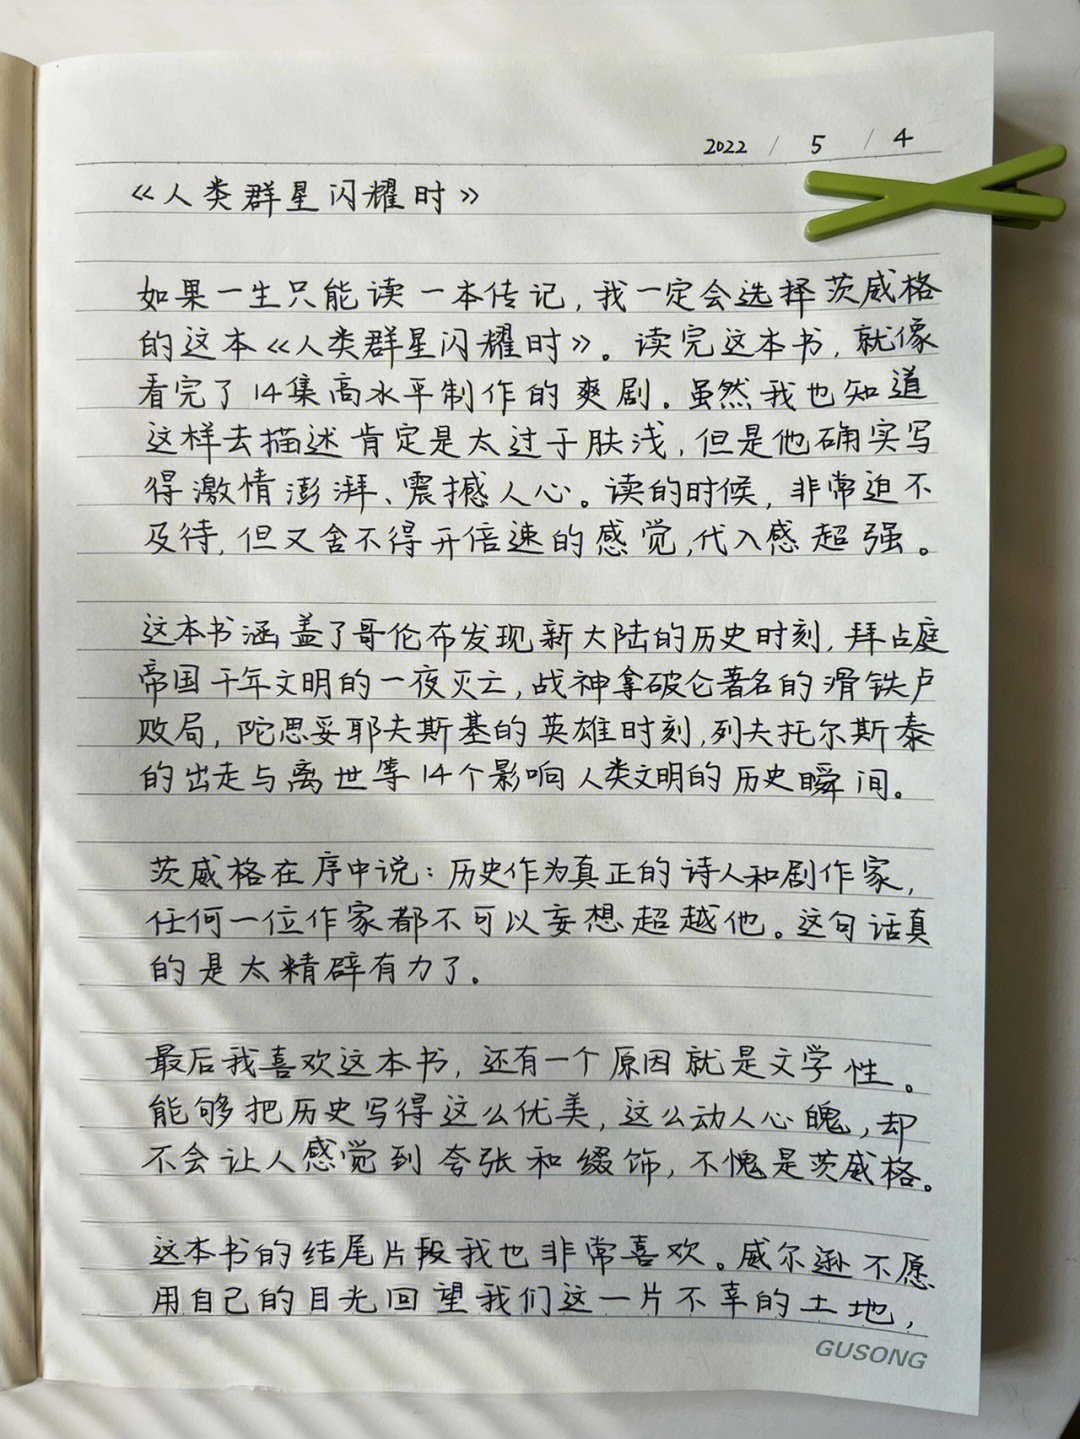 2022 / 5 / 4
《人类群星闪耀时》
如果一生只能读一本传记，我一定会选择茨威格
的这本《人类群星闪耀时》。读完这本书，就像
看完了14集高水平制作的爽剧。虽然我也知道
这样去描述肯定是太过于肤浅，但是他确实写
得激情澎湃、震撼人心。读的时候，非常迫不
及待，但又舍不得开倍速的感觉，代入感超强。
这本书涵盖了哥伦布发现新大陆的历史时刻，拜占庭
帝国千年文明的一夜灭亡，战神拿破仑著名的滑铁卢
败局，陀思妥耶夫斯基的英雄时刻，列夫托尔斯泰
的出走与离世等14个影响人类文明的历史瞬间。
茨威格在序中说：历史作为真正的诗人和剧作家，
任何一位作家都不可以妄想超越他。这句话真
的是太精辟有力了。
最后我喜欢这本书，还有一个原因就是文学性。
能够把历史写得这么优美，这么动人心魄，却
不会让人感觉到夸张和缀饰，不愧是茨威格。
这本书的结尾片段我也非常喜欢。威尔逊不愿
用自己的目光回望我们这一片不幸的土地，
GUSONG